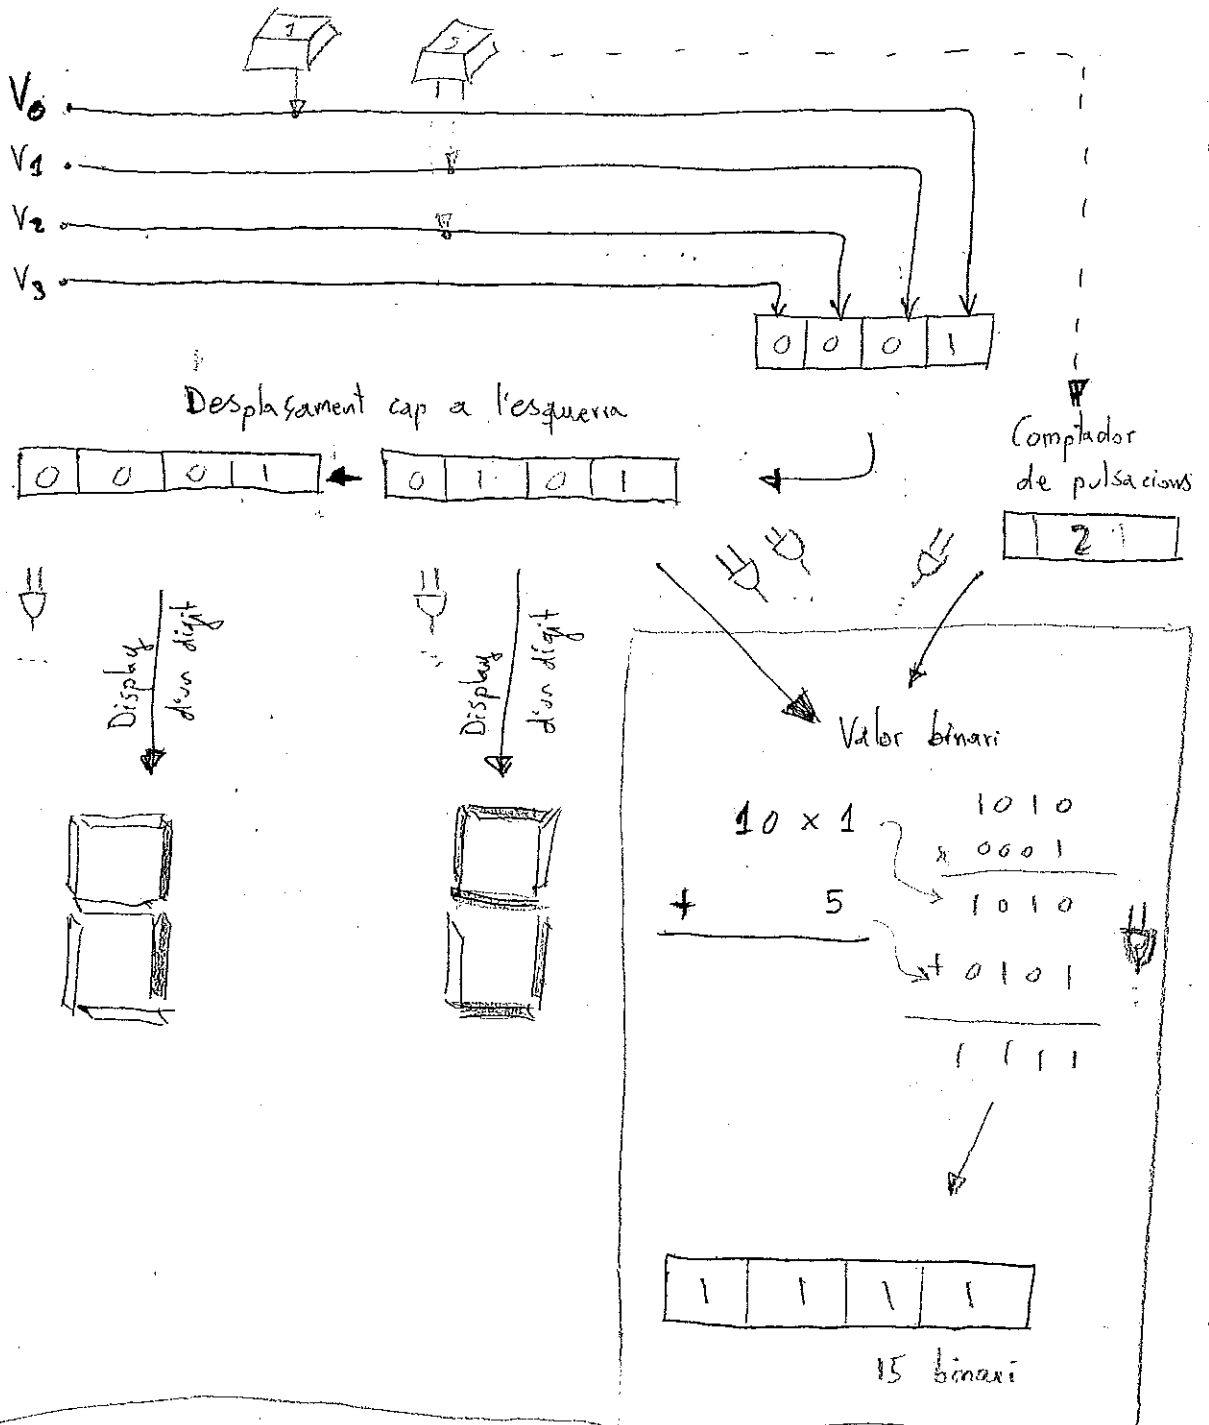 1
5
V0
V1
V2
V3
0 0 0 1
Desplaçament cap a l'esquerra
0 0 0 1
0 1 0 1
Comptador
de pulsacions
2
Display
d'un dígit
Display
d'un dígit
Valor binari
10 x 1
+ 5
1010
x 0001
1010
+ 0101
1111
1 1 1 1
15 binari